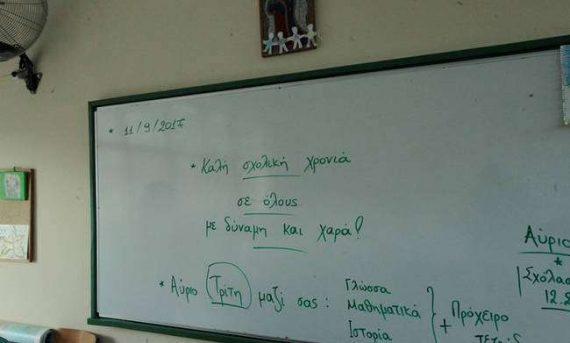 * 11/9/2017
* Καλή σχολική χρονιά
σε όλους
με δύναμη και χαρά!
* Αύριο Τρίτη μαζί σας :
Γλώσσα
Μαθηματικά
Ιστορία
+ Πρόχειρο
Αύριο
*